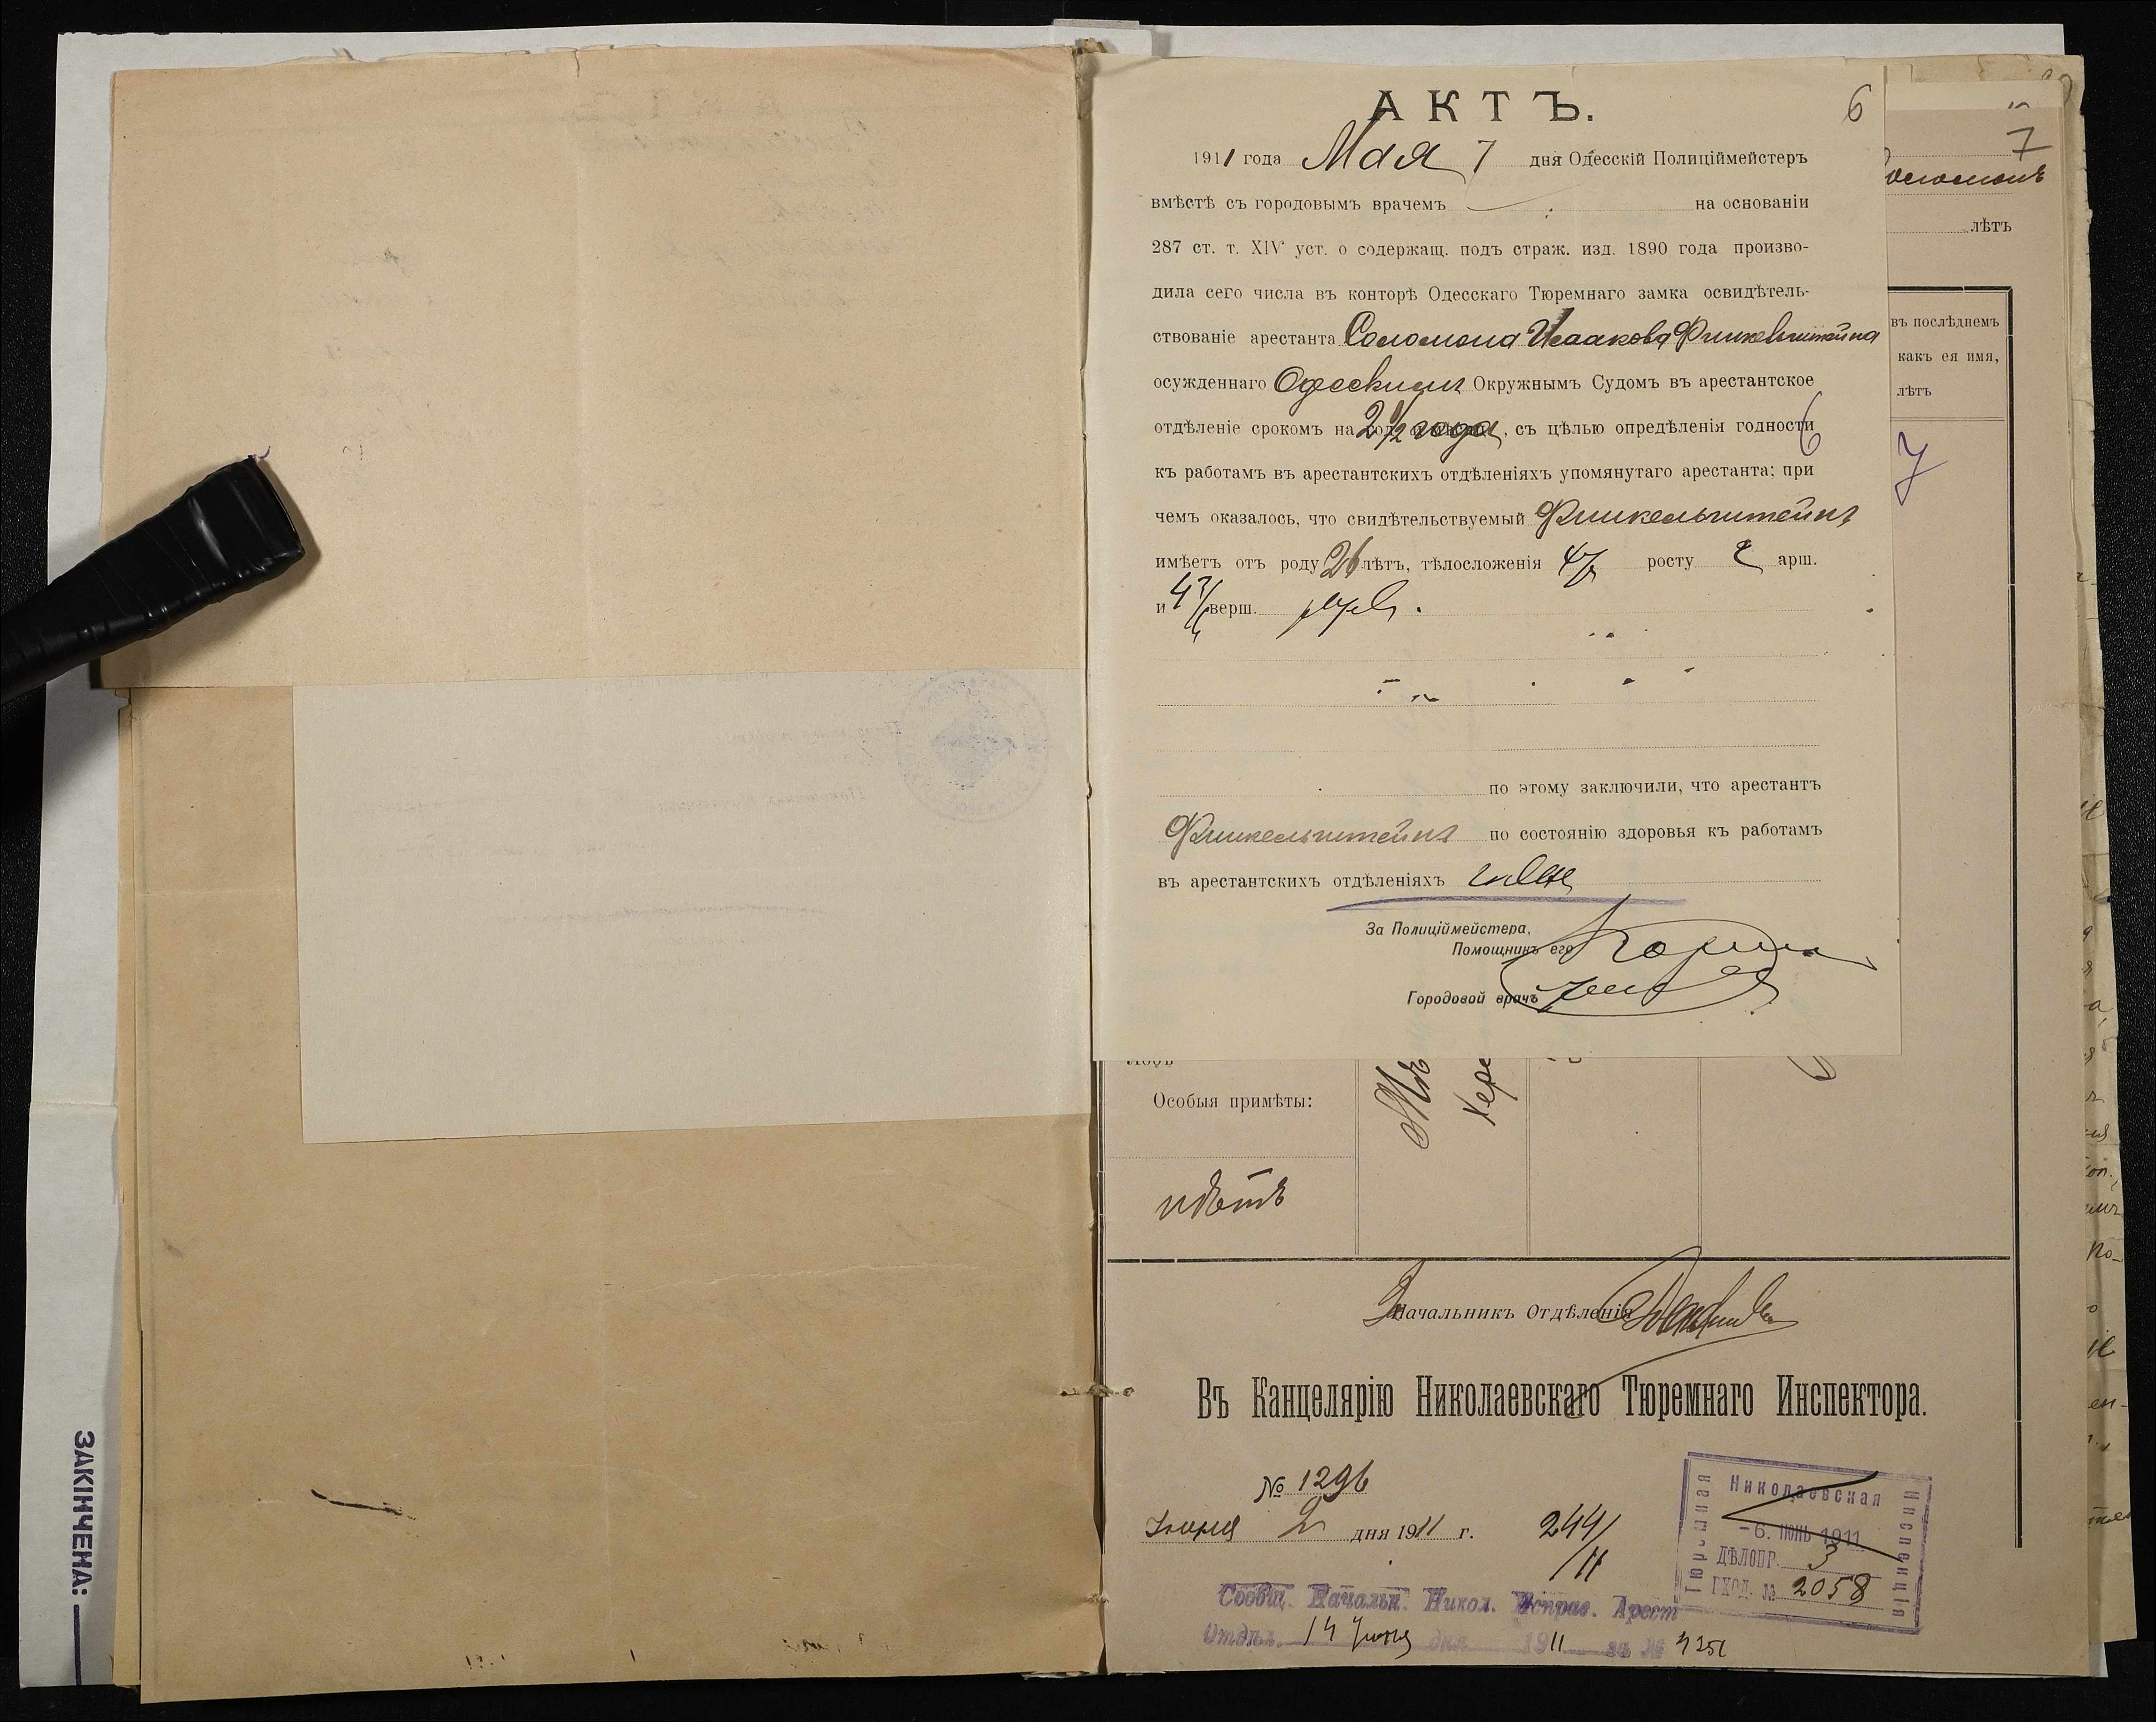 АКТЪ.
6
1911 года Мая 7 дня Одесскій Полиціймейстеръ
вмѣстѣ съ городовымъ врачемъ на основаніи
287 ст. т. XIV уст. о содержащ. подъ страж. изд. 1890 года произво-
дила сего числа въ конторѣ Одесскаго Тюремнаго замка освидѣтель-
ствованіе арестанта Соломона Исаакова Финкельштейна
осужденнаго Одесскимъ Окружнымъ Судомъ въ арестантское
отдѣленіе срокомъ на 2 1/2 года, съ цѣлью опредѣленія годности
6
къ работамъ въ арестантскихъ отдѣленіяхъ упомянутаго арестанта; при
чемъ оказалось, что свидѣтельствуемый Финкельштейнъ
имѣетъ отъ роду 26 лѣтъ, тѣлосложенія росту 2 арш.
и верш.
по этому заключили, что арестантъ
Финкельштейнъ по состоянію здоровья къ работамъ
въ арестантскихъ отдѣленіяхъ
За Полиціймейстера,
Помощникъ его
Городовой врачъ
7
Соломонъ
лѣтъ
въ послѣднемъ
какъ ея имя,
лѣтъ
7
Особыя примѣты:
Хере
нѣтъ
Начальникъ Отдѣленія
Въ Канцелярію Николаевскаго Тюремнаго Инспектора.
№ 1296
Іюня 2 дня 1911 г.
244/11
Николаевская
Тюремная
Инспекція
-6. ІЮНЬ 1911
ДѢЛОПР. 3
ВХОД. № 2058
Сообщ. Начальн. Никол. Исправ. Арест
Отдѣл. 14 Іюня дня 1911 за №
ЗАКІНЧЕНА: